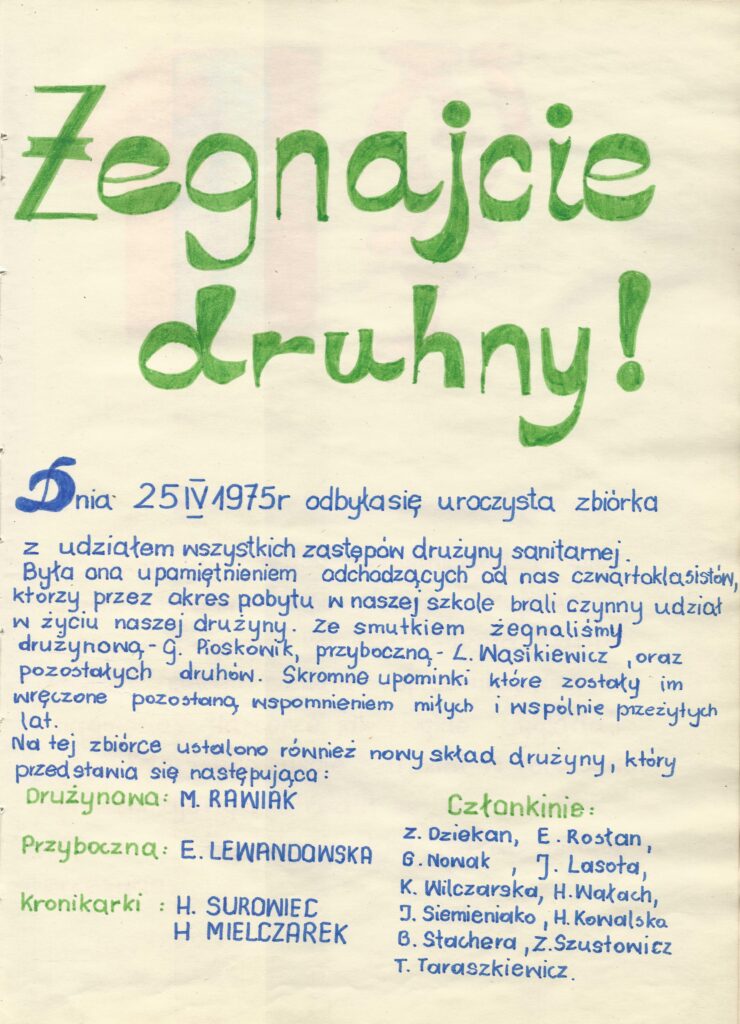 Żegnajcie
druhny!
Dnia 25 IV 1975r odbyła się uroczysta zbiórka
z udziałem wszystkich zastępów drużyny sanitarnej.
Była ona upamiętnieniem odchodzących od nas czwartoklasistów,
którzy przez okres pobytu w naszej szkole brali czynny udział
w życiu naszej drużyny. Ze smutkiem żegnaliśmy
drużynową - G. Pioskowik, przyboczną - L. Wasikiewicz, oraz
pozostałych druhów. Skromne upominki które zostały im
wręczone pozostaną, wspomnieniem miłych i wspólnie przeżytych
lat.
Na tej zbiórce ustalono również nowy skład drużyny, który
przedstawia się następująco:
Drużynowa: M. RAWIAK
Przyboczna: E. LEWANDOWSKA
Kronikarki: H. SUROWIEC
H MIELCZAREK
Członkinie:
Z. Dziekan, E. Rosłan,
G. Nowak, J. Lasota,
K. Wilczarska, H. Wałach,
J. Siemieniako, H. Kowalska
B. Stachera, Z. Szustowicz
T. Taraszkiewicz.